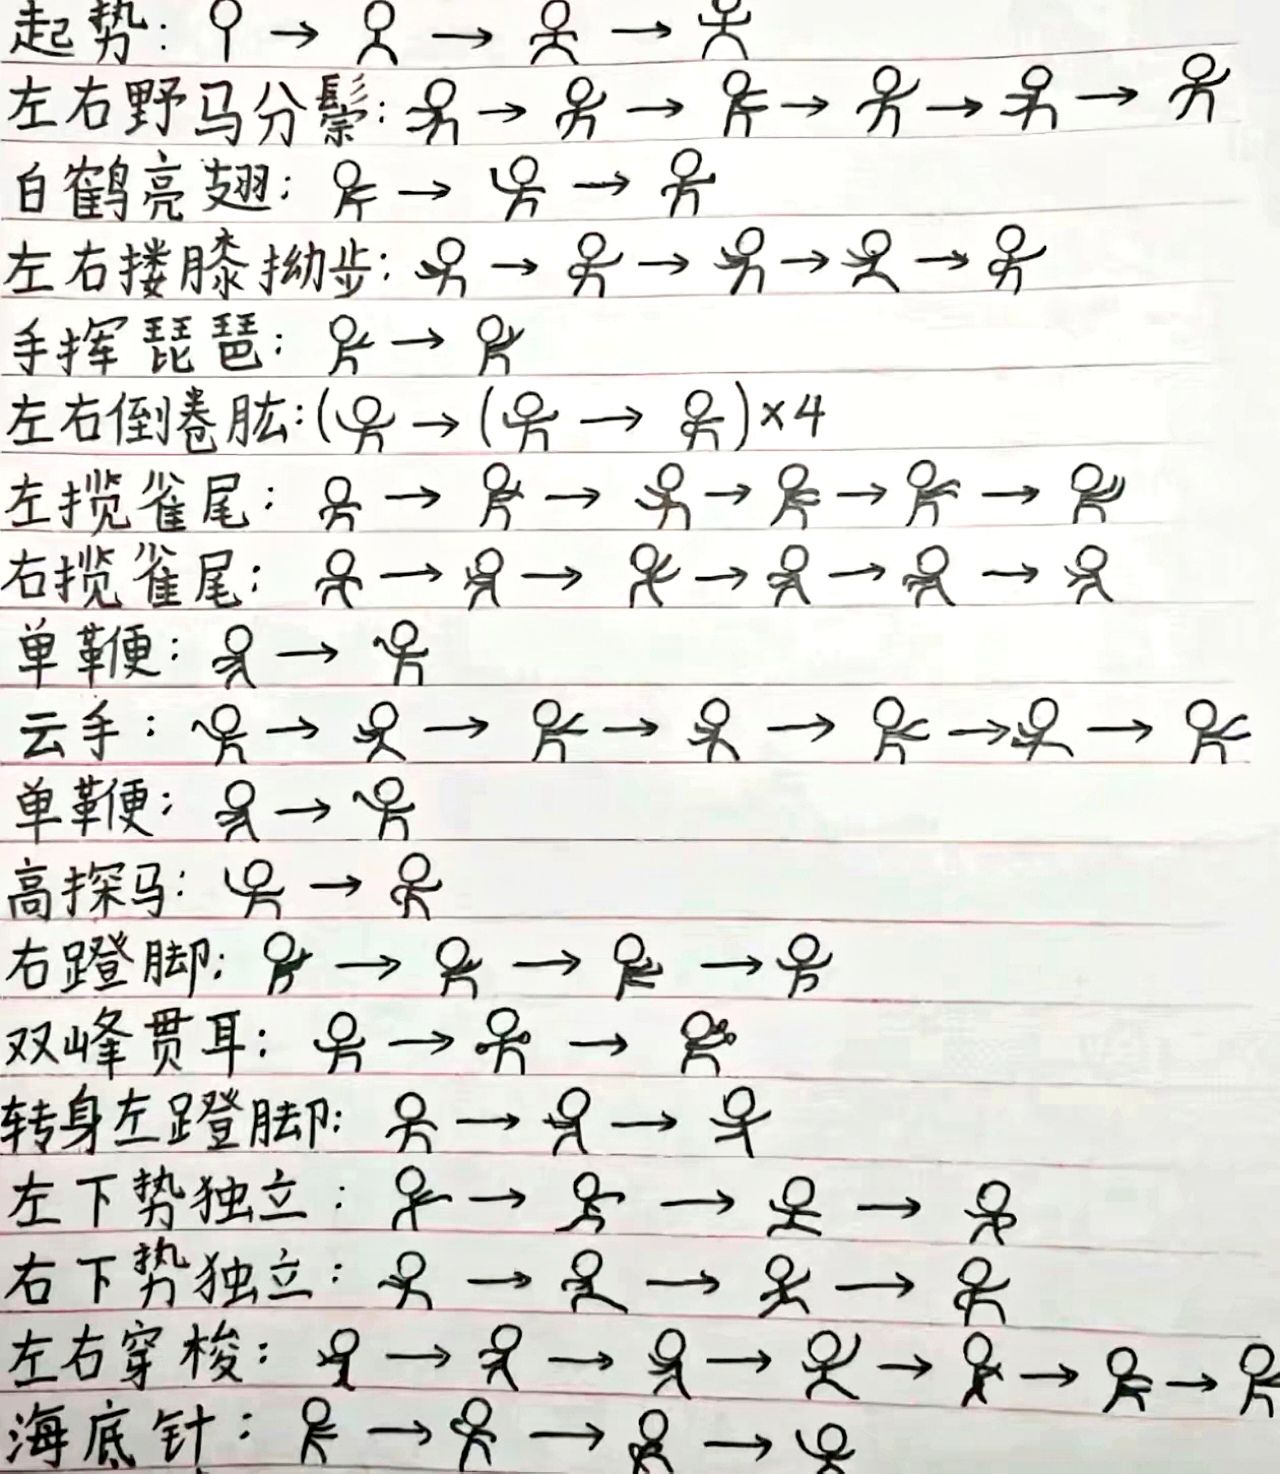 起势:
左右野马分鬃:
白鹤亮翅:
左右搂膝拗步:
手挥琵琶:
左右倒卷肱:( → ( → )×4
左揽雀尾:
右揽雀尾:
单鞭:
云手:
单鞭:
高探马:
右蹬脚:
双峰贯耳:
转身左蹬脚:
左下势独立:
右下势独立:
左右穿梭:
海底针: